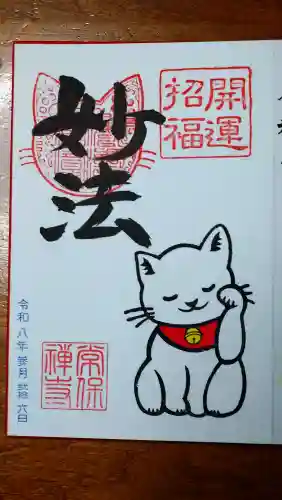 開運
招福
妙法
常保
禅寺
令和八年 月 六日